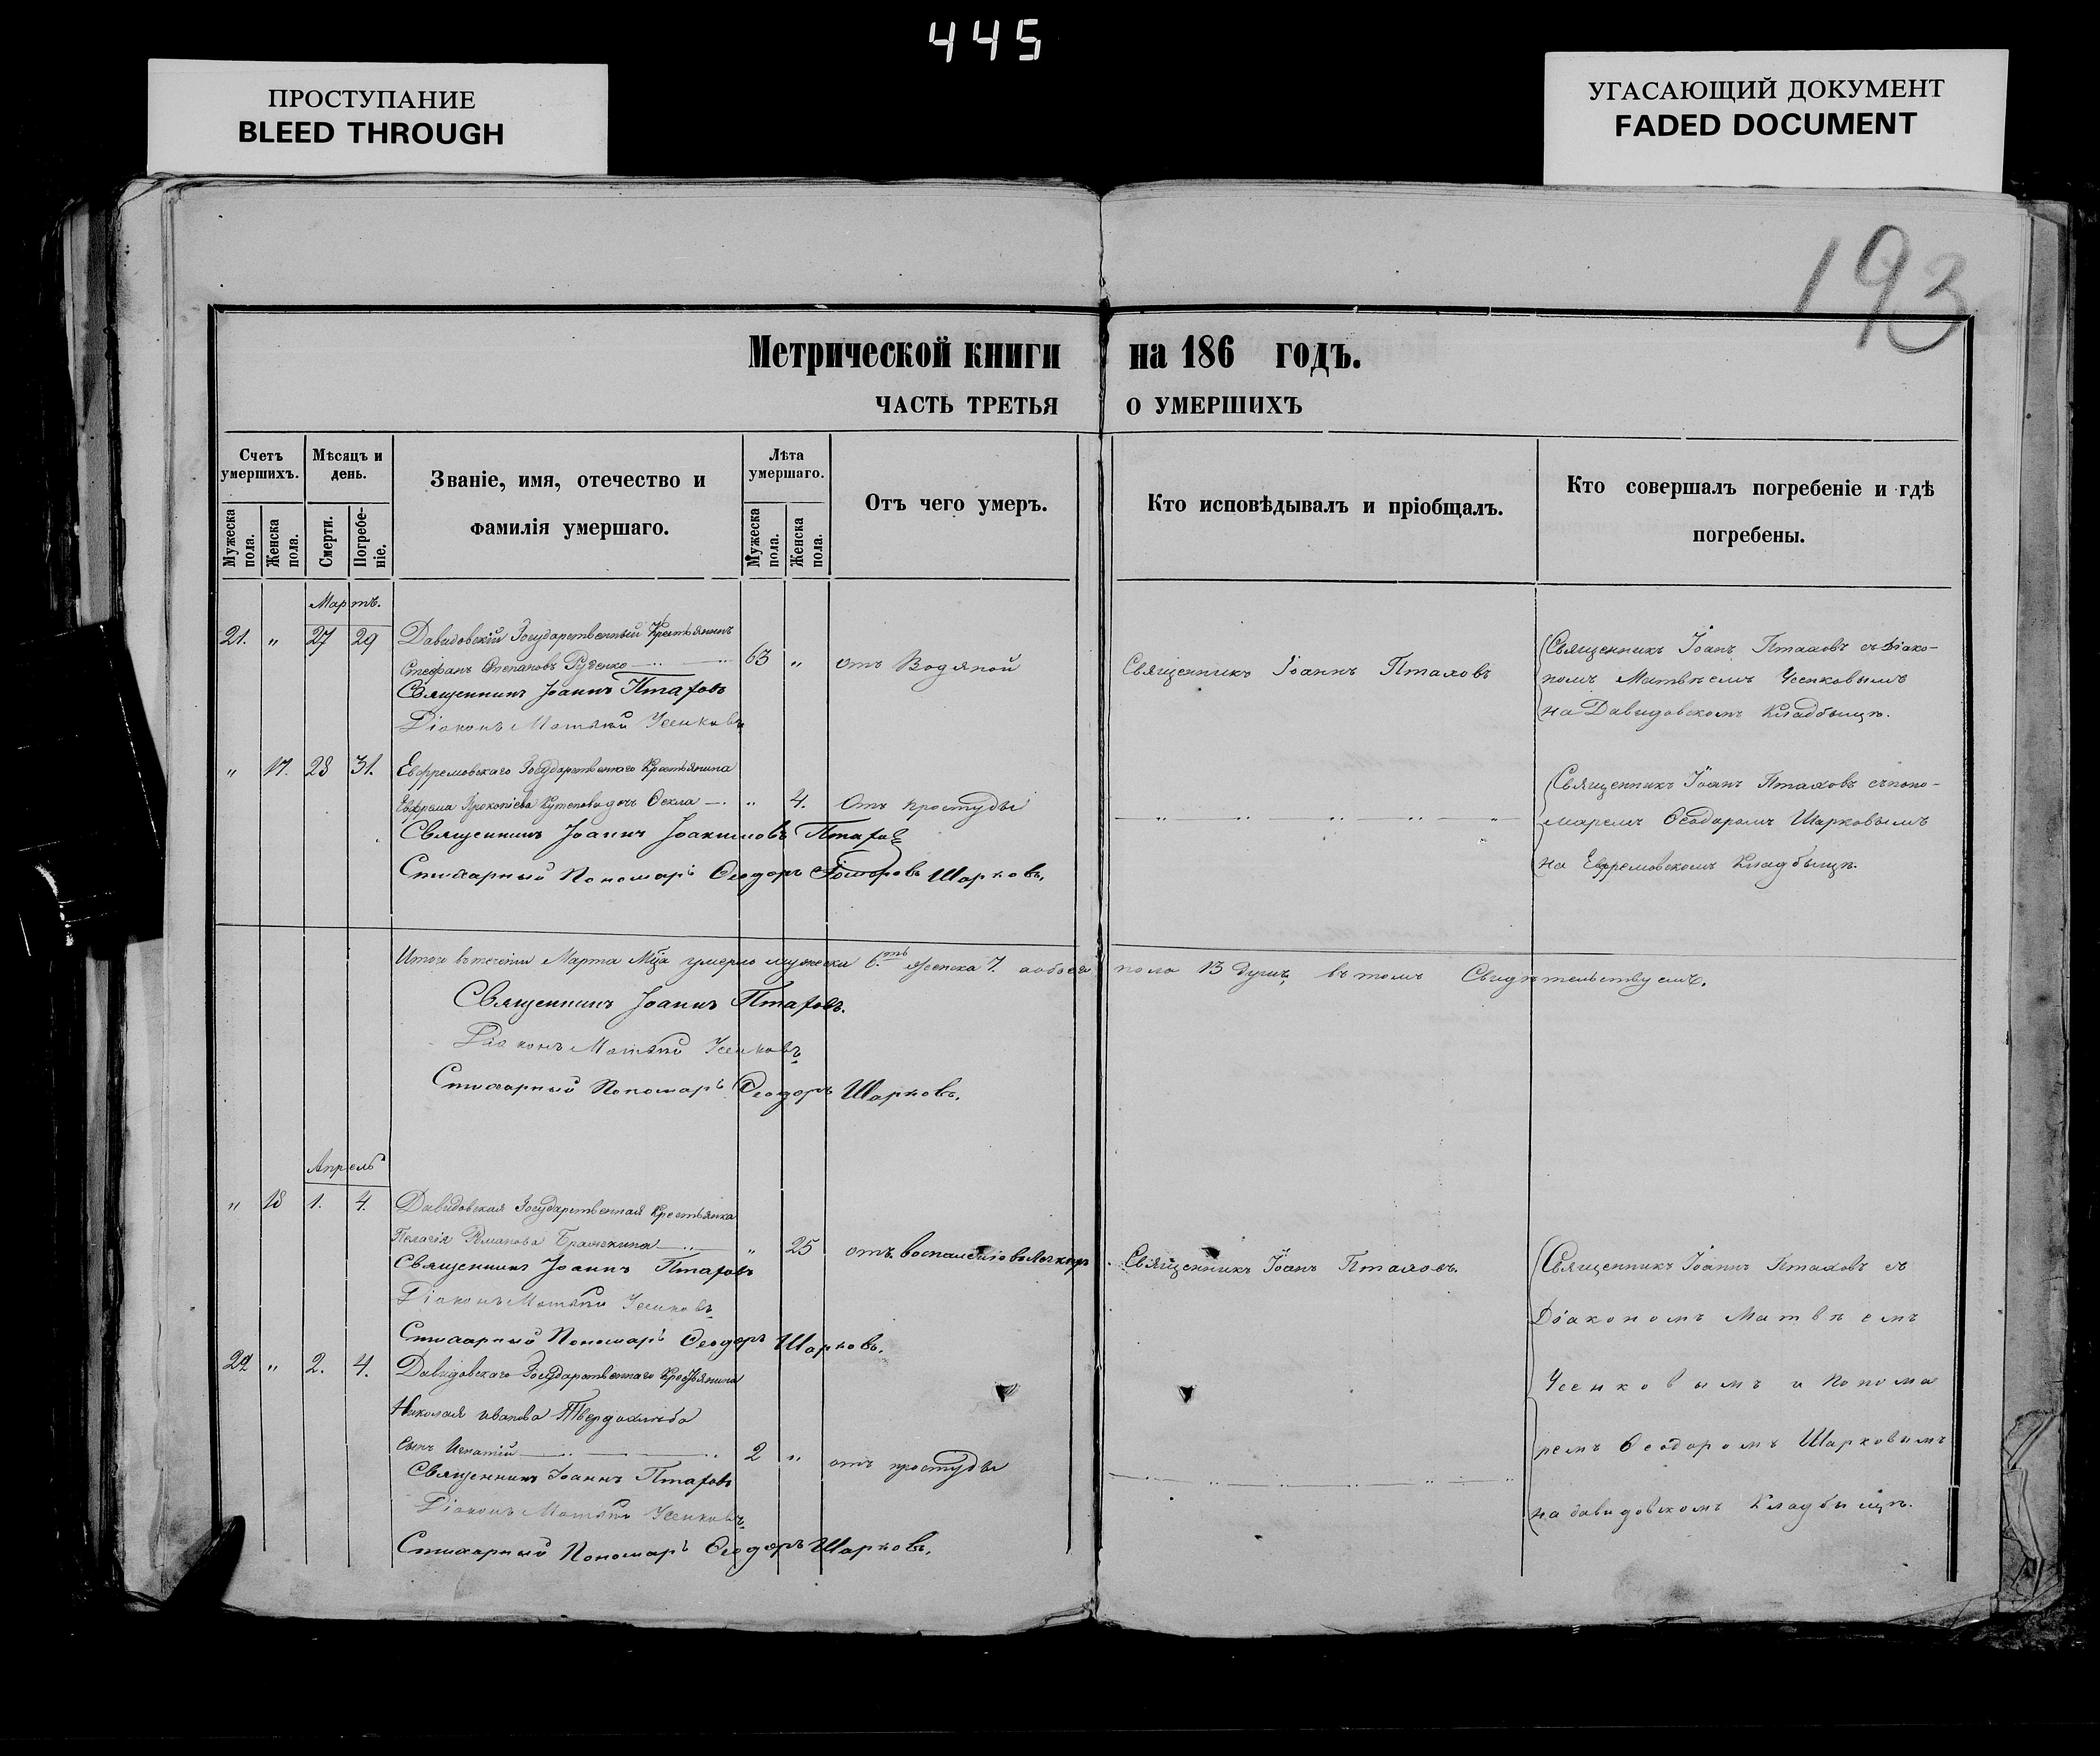 445
ПРОСТУПАНИЕ
BLEED THROUGH
УГАСАЮЩИЙ ДОКУМЕНТ
FADED DOCUMENT
193
Метрической книги на 186 годъ.
ЧАСТЬ ТРЕТЬЯ О УМЕРШИХЪ
Счетъ умершихъ.
Мужеска пола.
Женска пола.
Мѣсяцъ и день.
Смерти.
Погребе-ніе.
Званіе, имя, отечество и
фамилія умершаго.
Лѣта умершаго.
Мужеска пола.
Женска пола.
Отъ чего умеръ.
Кто исповѣдывалъ и пріобщалъ.
Кто совершалъ погребеніе и гдѣ
погребены.
Мартъ.
21. " 27 29 Давидовскій Государственный Крестьянинъ
Стефанъ Степановъ Руденко 63 " отъ Водяной
Священникъ Іоаннъ Птаховъ
Священникъ Іоанъ Птаховъ съ Діако-
номъ Матвѣемъ Усенковымъ
на Давидовскомъ Кладбыщѣ.
Священникъ Іоаннъ Птаховъ
Діаконъ Матвѣй Усенковъ
" 17. 28 31. Евфремовскаго Государственнаго Крестьянина
Евфрема Прокопіева дочь Ѳекла " 4. Отъ простуды
Священникъ Іоанъ Птаховъ съ поно-
маремъ Ѳеодоромъ Шарковымъ
на Евфремовскомъ Кладбыщѣ.
Священникъ Іоаннъ Іоакимовъ Птаховъ
Стихарный Пономарь Ѳеодоръ Шарковъ.
Итого въ теченіи Марта Мца умерло мужеска 6.ть женска 7. а обоего пола 13 душъ, въ томъ Свидѣтельствуемъ.
Священникъ Іоаннъ Птаховъ.
Діаконъ Матвѣй Усенковъ
Стихарный Пономарь Ѳеодоръ Шарковъ.
Апрель
" 18 1. 4. Давидовская Государственная Крестьянка
Пелагія Романова " 25 отъ воспаленія въ легкихъ
Священникъ Іоанъ Птаховъ.
Священникъ Іоаннъ Птаховъ съ
Діакономъ Матвѣемъ
Усенковымъ и Понома
ремъ Ѳеодоромъ Шарковымъ
на давидовскомъ Кладбыщѣ.
Священникъ Іоаннъ Птаховъ
Діаконъ Матвѣй Усенковъ
Стихарный Пономарь Ѳеодоръ Шарковъ.
22 " 2. 4. Давидовскаго Государственнаго Крестьянина
Николая иванова Твердохлѣба
сынъ Игнатій 2 " отъ простуды
Священникъ Іоаннъ Птаховъ
Діаконъ Матвѣй Усенковъ
Стихарный Пономарь Ѳеодоръ Шарковъ.